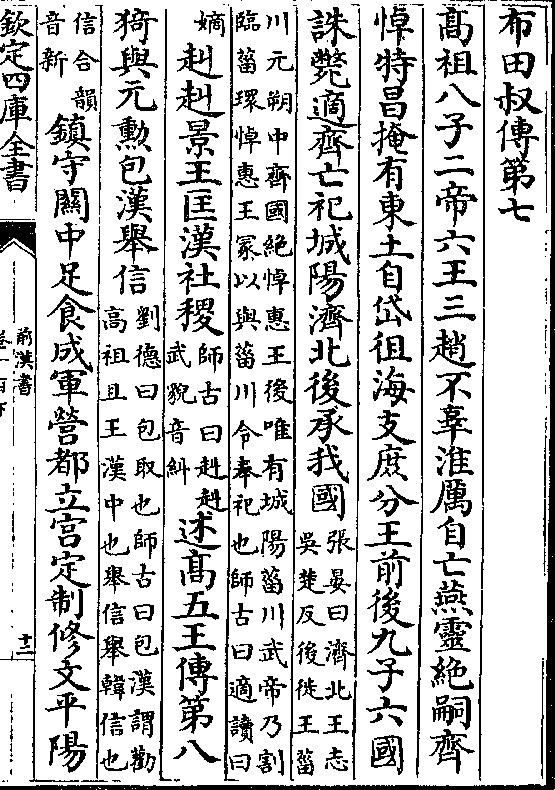 布田叔傳第七
髙祖八子二帝六王三趙不辜淮厲自亡燕靈絶嗣齊
悼特昌掩有東土自岱徂海支庶分王前後九子六國
誅斃適齊亡祀城陽濟北後承我國張晏曰濟北王志
吳楚反後徙王菑
川元朔中齊國絶悼惠王後唯有城陽菑川武帝乃割
臨菑環悼惠王冢以與菑川令奉祀也師古曰適讀曰
嫡赳赳景王匡漢社稷師古曰赳赳
武貌音糾述髙五王傳第八
猗與元勲包漢舉信劉德曰包取也師古曰包漢謂勸
高祖且王漢中也舉信舉韓信也
信合韻
音新鎮守關中足食成軍營都立宫定制修文平陽
欽定四庫全書
前漢書
卷一百下
十三